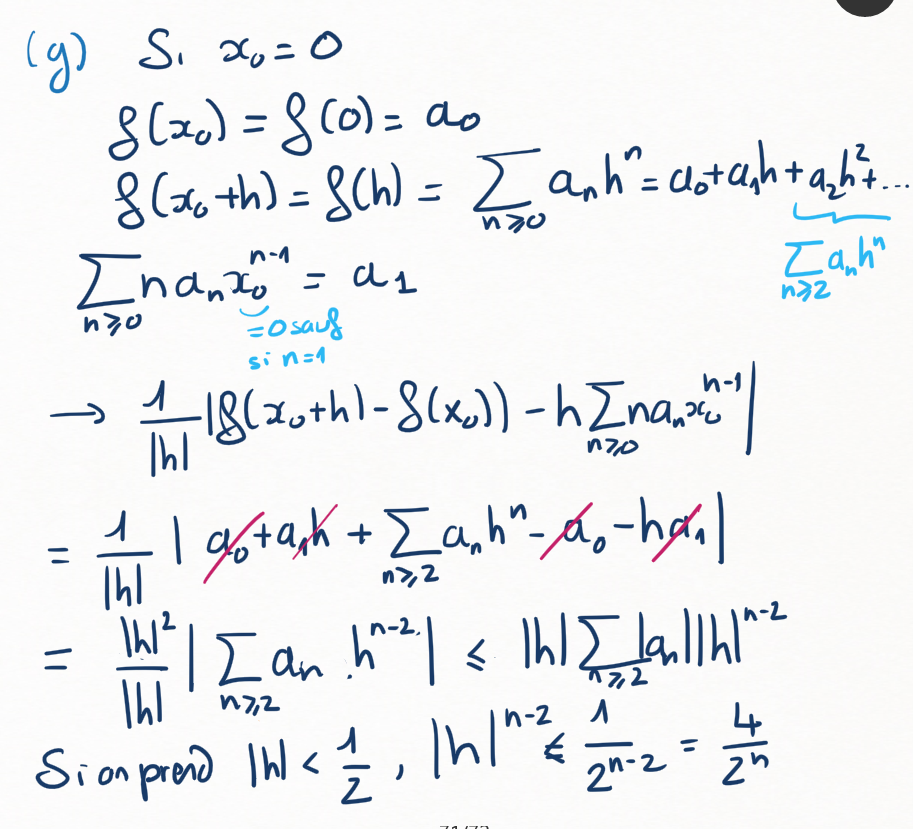 (g) Si x₀ = 0
f(x₀) = f(0) = a₀
f(x₀+h) = f(h) = ∑_{n≥0} aₙhⁿ = a₀+a₁h+a₂h²+...
∑_{n≥2} aₙhⁿ
∑_{n≥0} n aₙ x₀ⁿ⁻¹ = a₁
=0 sauf
si n=1
→ 1/|h| |f(x₀+h)-f(x₀)) - h∑_{n≥0} naₙx₀ⁿ⁻¹|
= 1/|h| | a₀+a₁h + ∑_{n≥2} aₙhⁿ - a₀ - ha₁|
= |h|²/|h| | ∑_{n≥2} aₙ . hⁿ⁻² | ≤ |h| ∑_{n≥2} |aₙ||h|ⁿ⁻²
Si on prend |h| < 1/2 , |h|ⁿ⁻² ≤ 1/2ⁿ⁻² = 4/2ⁿ